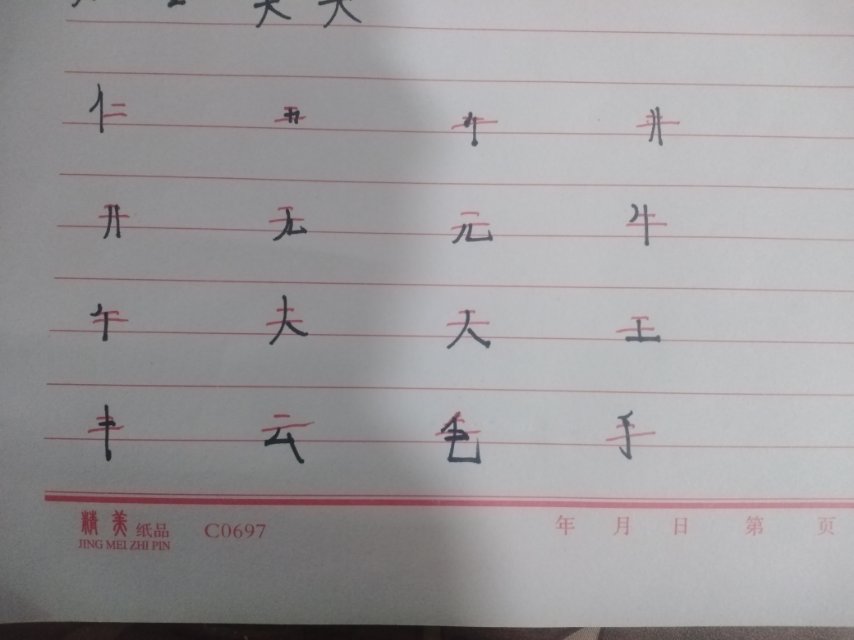 仁 井
开 无 元 牛
午 夫 天 王
丰 云 手
精美纸品 C0697 年 月 日 第 页
JING MEI ZHI PIN